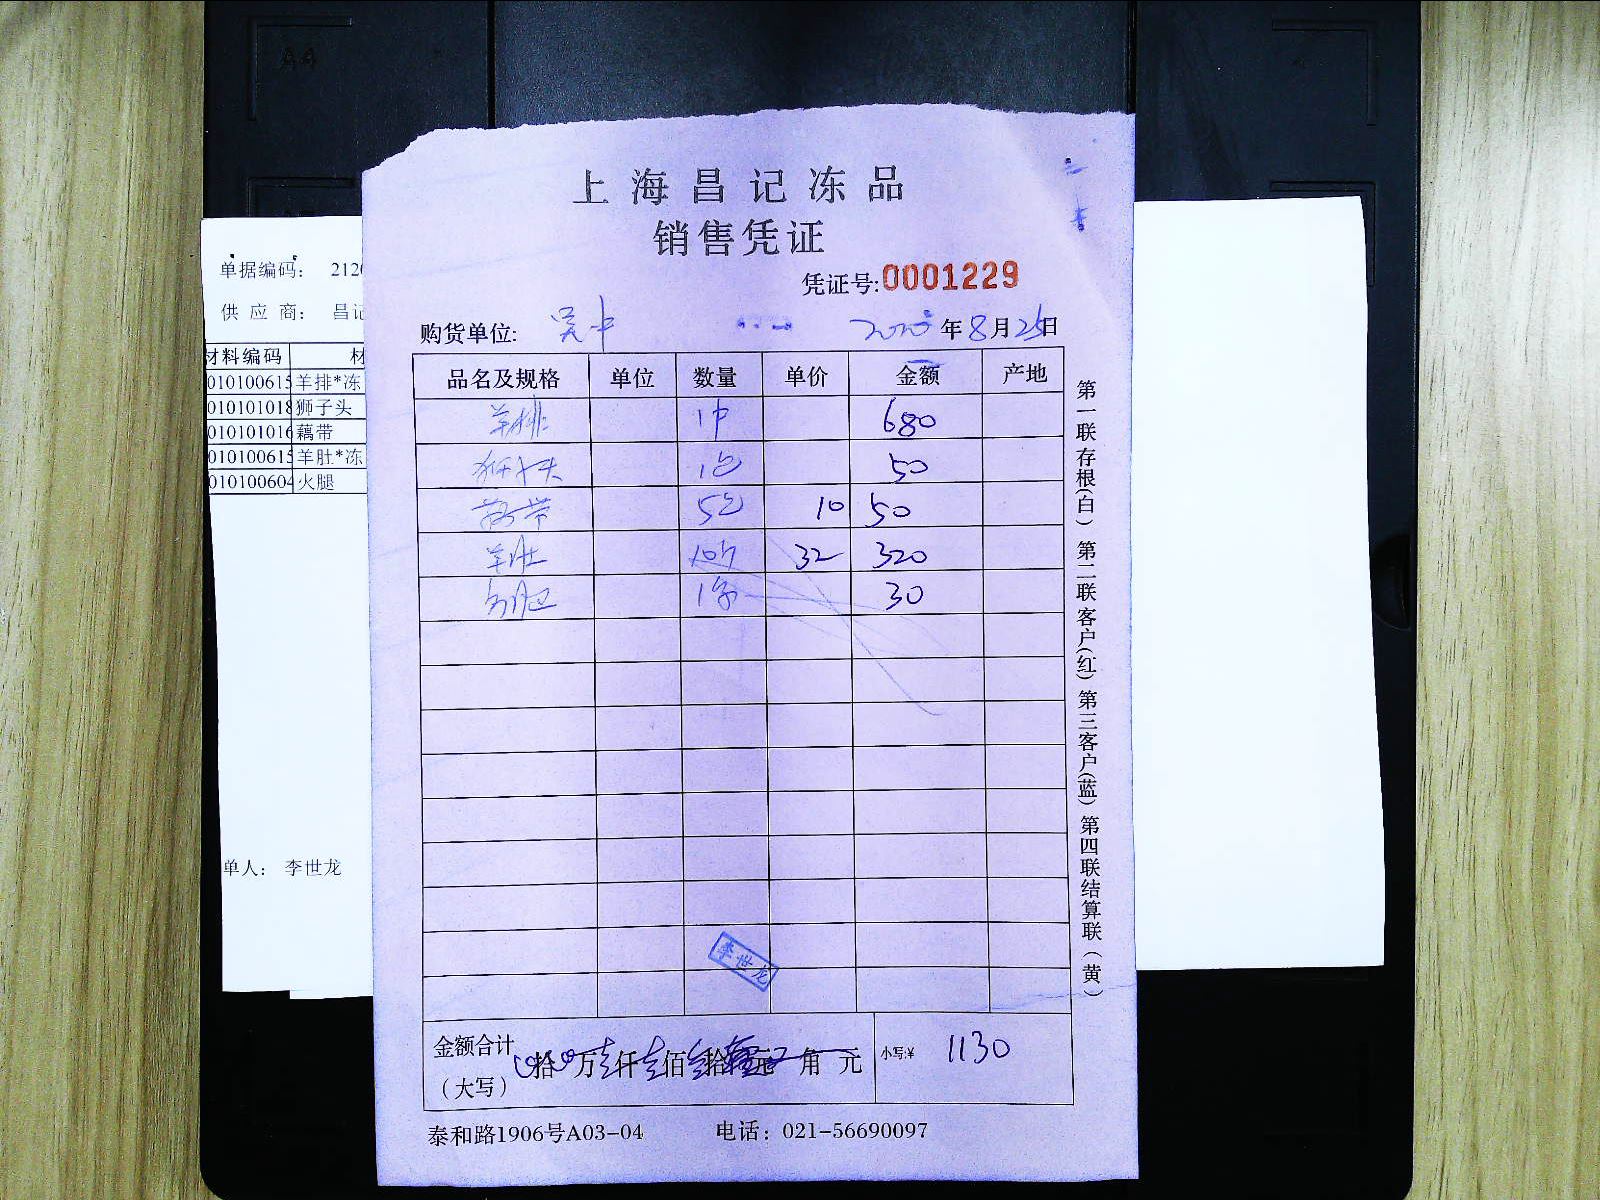 上海昌记冻品
销售凭证
凭证号:0001229
购货单位: 吴中 年8月25日
品名及规格 单位 数量 单价 金额 产地
羊排 1中 680
狮子头 1包 50
藕带 5包 10 50
羊肚 10斤 32 320
1 30
李世龙
金额合计
(大写) 拾 万 仟 佰 拾 元 角 元
小写:¥ 1130
泰和路1906号A03-04 电话: 021-56690097
第一联存根(白) 第二联客户(红) 第三客户(蓝) 第四联结算联(黄)
单据编码: 212
供应商: 昌记
材料编码 材
010100615 羊排*冻
010101018 狮子头
010101016 藕带
010100615 羊肚*冻
010100604 火腿
单人: 李世龙